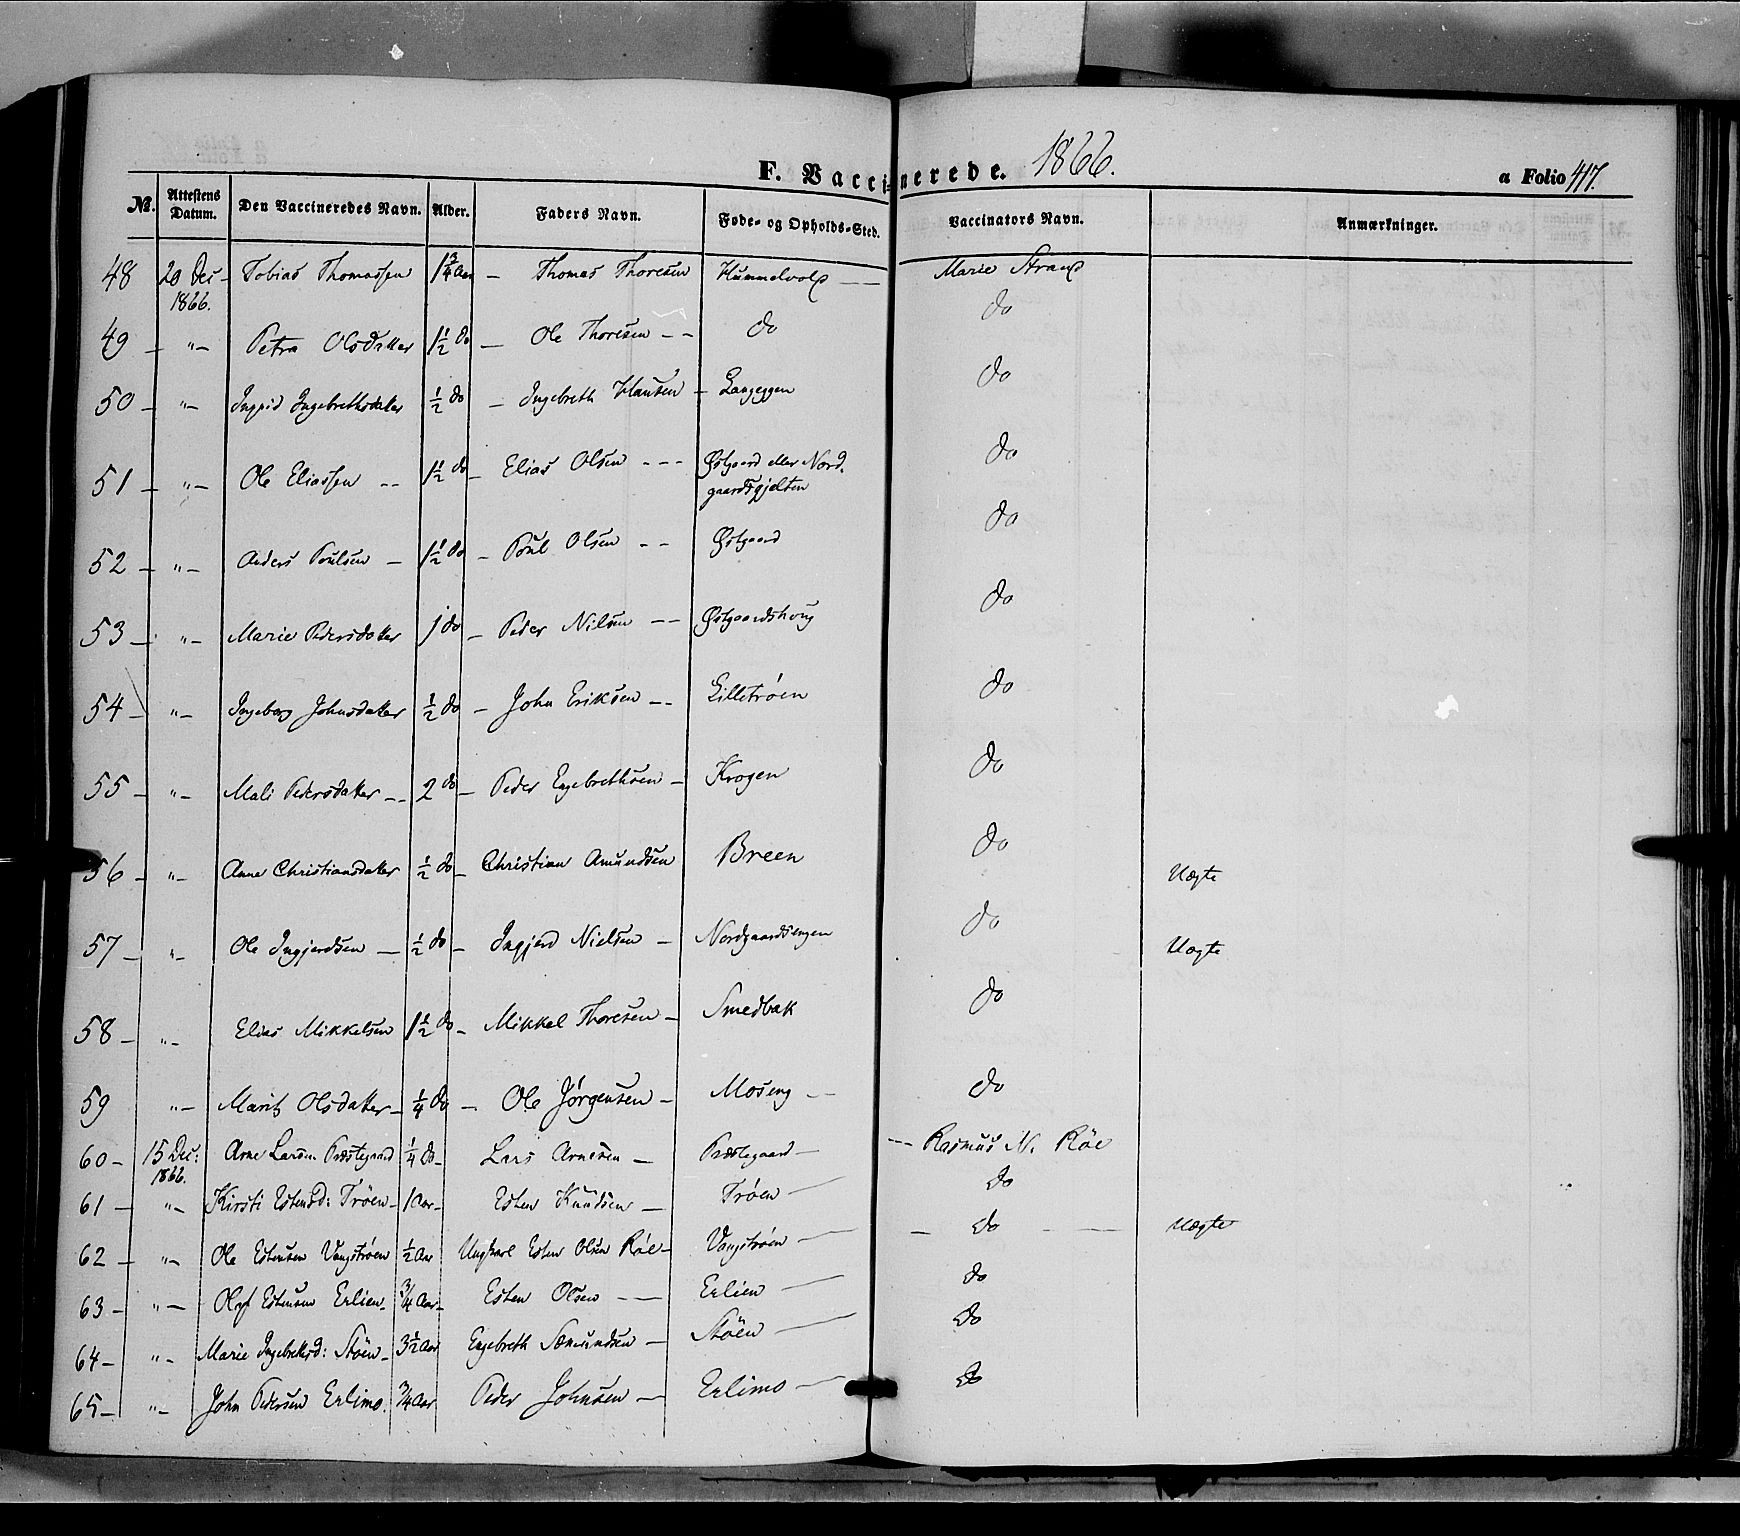 F. Vaccinerede. 1866.
a Folio 417.
№. Attestens Datum. Den Vaccineredes Navn. Alder. Faders Navn. Føde- og Opholds-Sted. Vaccinators Navn. Anmærkninger.
48 20 Des - 1866. Tobias Thomassen 1 3/4 Aar - Thomas Thoresen Hummelvold - - Marie Strand
49 - "- Petra Olsdatter 1 1/2 do - Ole Thoresen - - do do
50 - "- Ingrid Ingebrethsdatter 1/2 do - Ingebreth Hansen - Langeggen do
51 - "- Ole Eliassen - - 1 1/2 do - Elias Olsen - - - Østgaard eller Nord-
gaardsgjelten do
52 - "- Anders Poulsen - 1 1/2 do - Poul Olsen - - Østgaard do
53 - "- Marie Pedersdatter 1 do - Peder Nilsen - - Østgaardshoug do
54 - "- Ingeborg Johnsdatter 1/2 do - John Eriksen - - Lilletrøen do
55 - "- Mali Pedersdatter - - 2 do - Peder Engebrethsen - Krogen do
56 - "- Anne Christiansdatter 1/2 do - Christian Amundsen Breen do Uægte
57 - "- Ole Ingjerdsen - 1/2 do - Ingjerd Nielsen - Nordgaardsengen do Uægte
58 - "- Elias Mikkelsen 1 1/2 do - Mikkel Thoresen - Smedbak do
59 "- Marit Olsdatter - 1/4 do - Ole Jørgensen - Moseng - - do
60 - 15 Des: 1866. Arne Larsen Præstegaard 1/4 do - Lars Arnesen - Præstegaard - - - Rasmus N. Røe
61 - "- Kirsti Estensd: Trøen - 1 Aar - Esten Knudsen - Trøen - do
62 - "- Ole Estensen Vangstrøen 1/2 Aar Ungkarl Esten Olsen Røe - Vangstrøen - - do - - Uægte
63 - "- Oluf Estensen Erlien - 3/4 Aar - Esten Olsen - - Erlien - do
64 - "- Marie Ingebrethsd: Støen - 3 1/2 Aar Engebreth Sæmundsen - Støen - do
65 - "- John Pedersen Erlimo. 3/4 Aar Peder Johnsen - Erlimo - do